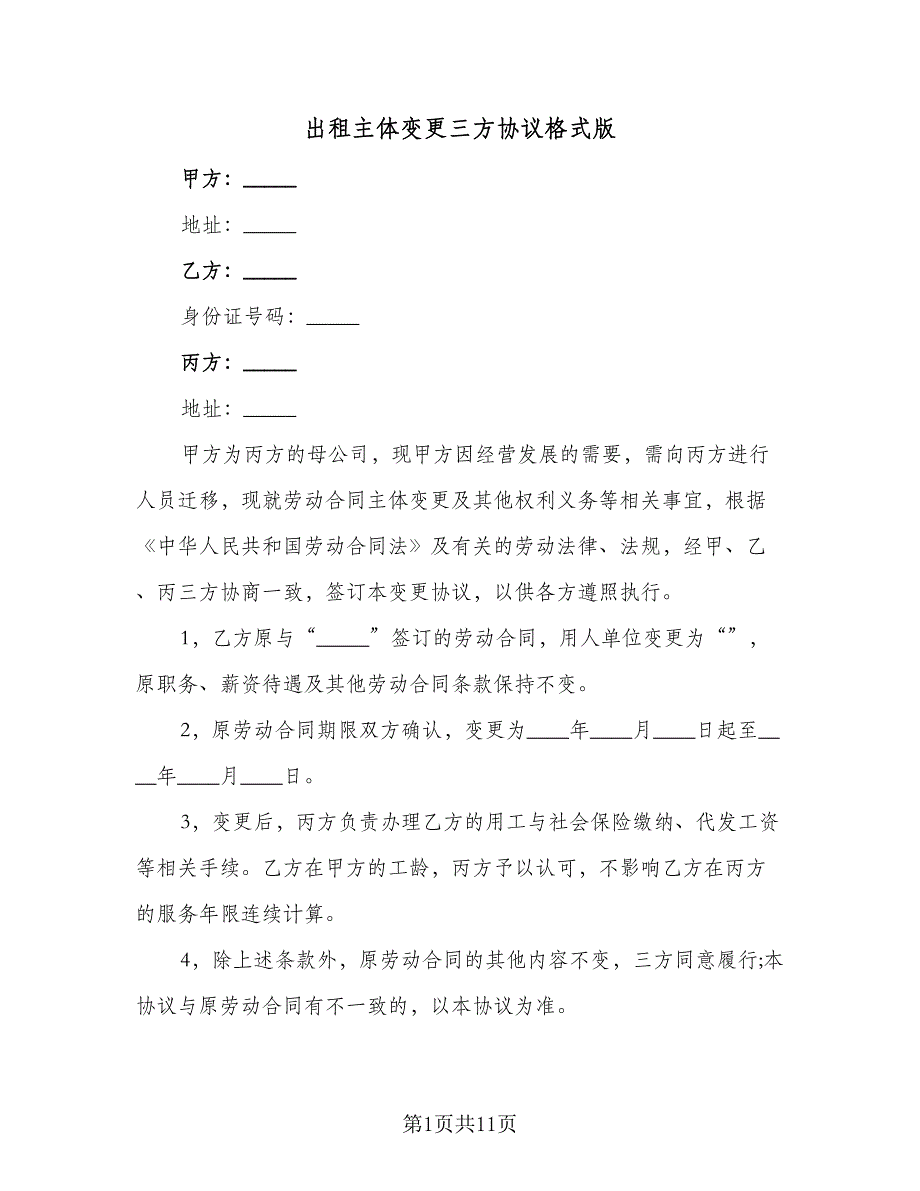 出租主体变更三方协议格式版
甲方：_____
地址：_____
乙方：_____
身份证号码：_____
丙方：_____
地址：_____
甲方为丙方的母公司，现甲方因经营发展的需要，需向丙方进行
人员迁移，现就劳动合同主体变更及其他权利义务等相关事宜，根据
《中华人民共和国劳动合同法》及有关的劳动法律、法规，经甲、乙
、丙三方协商一致，签订本变更协议，以供各方遵照执行。
1，乙方原与“_____”签订的劳动合同，用人单位变更为“”，
原职务、薪资待遇及其他劳动合同条款保持不变。
2，原劳动合同期限双方确认，变更为____年____月____日起至__
__年____月____日。
3，变更后，丙方负责办理乙方的用工与社会保险缴纳、代发工资
等相关手续。乙方在甲方的工龄，丙方予以认可，不影响乙方在丙方
的服务年限连续计算。
4，除上述条款外，原劳动合同的其他内容不变，三方同意履行;本
协议与原劳动合同有不一致的，以本协议为准。
第1页共11页